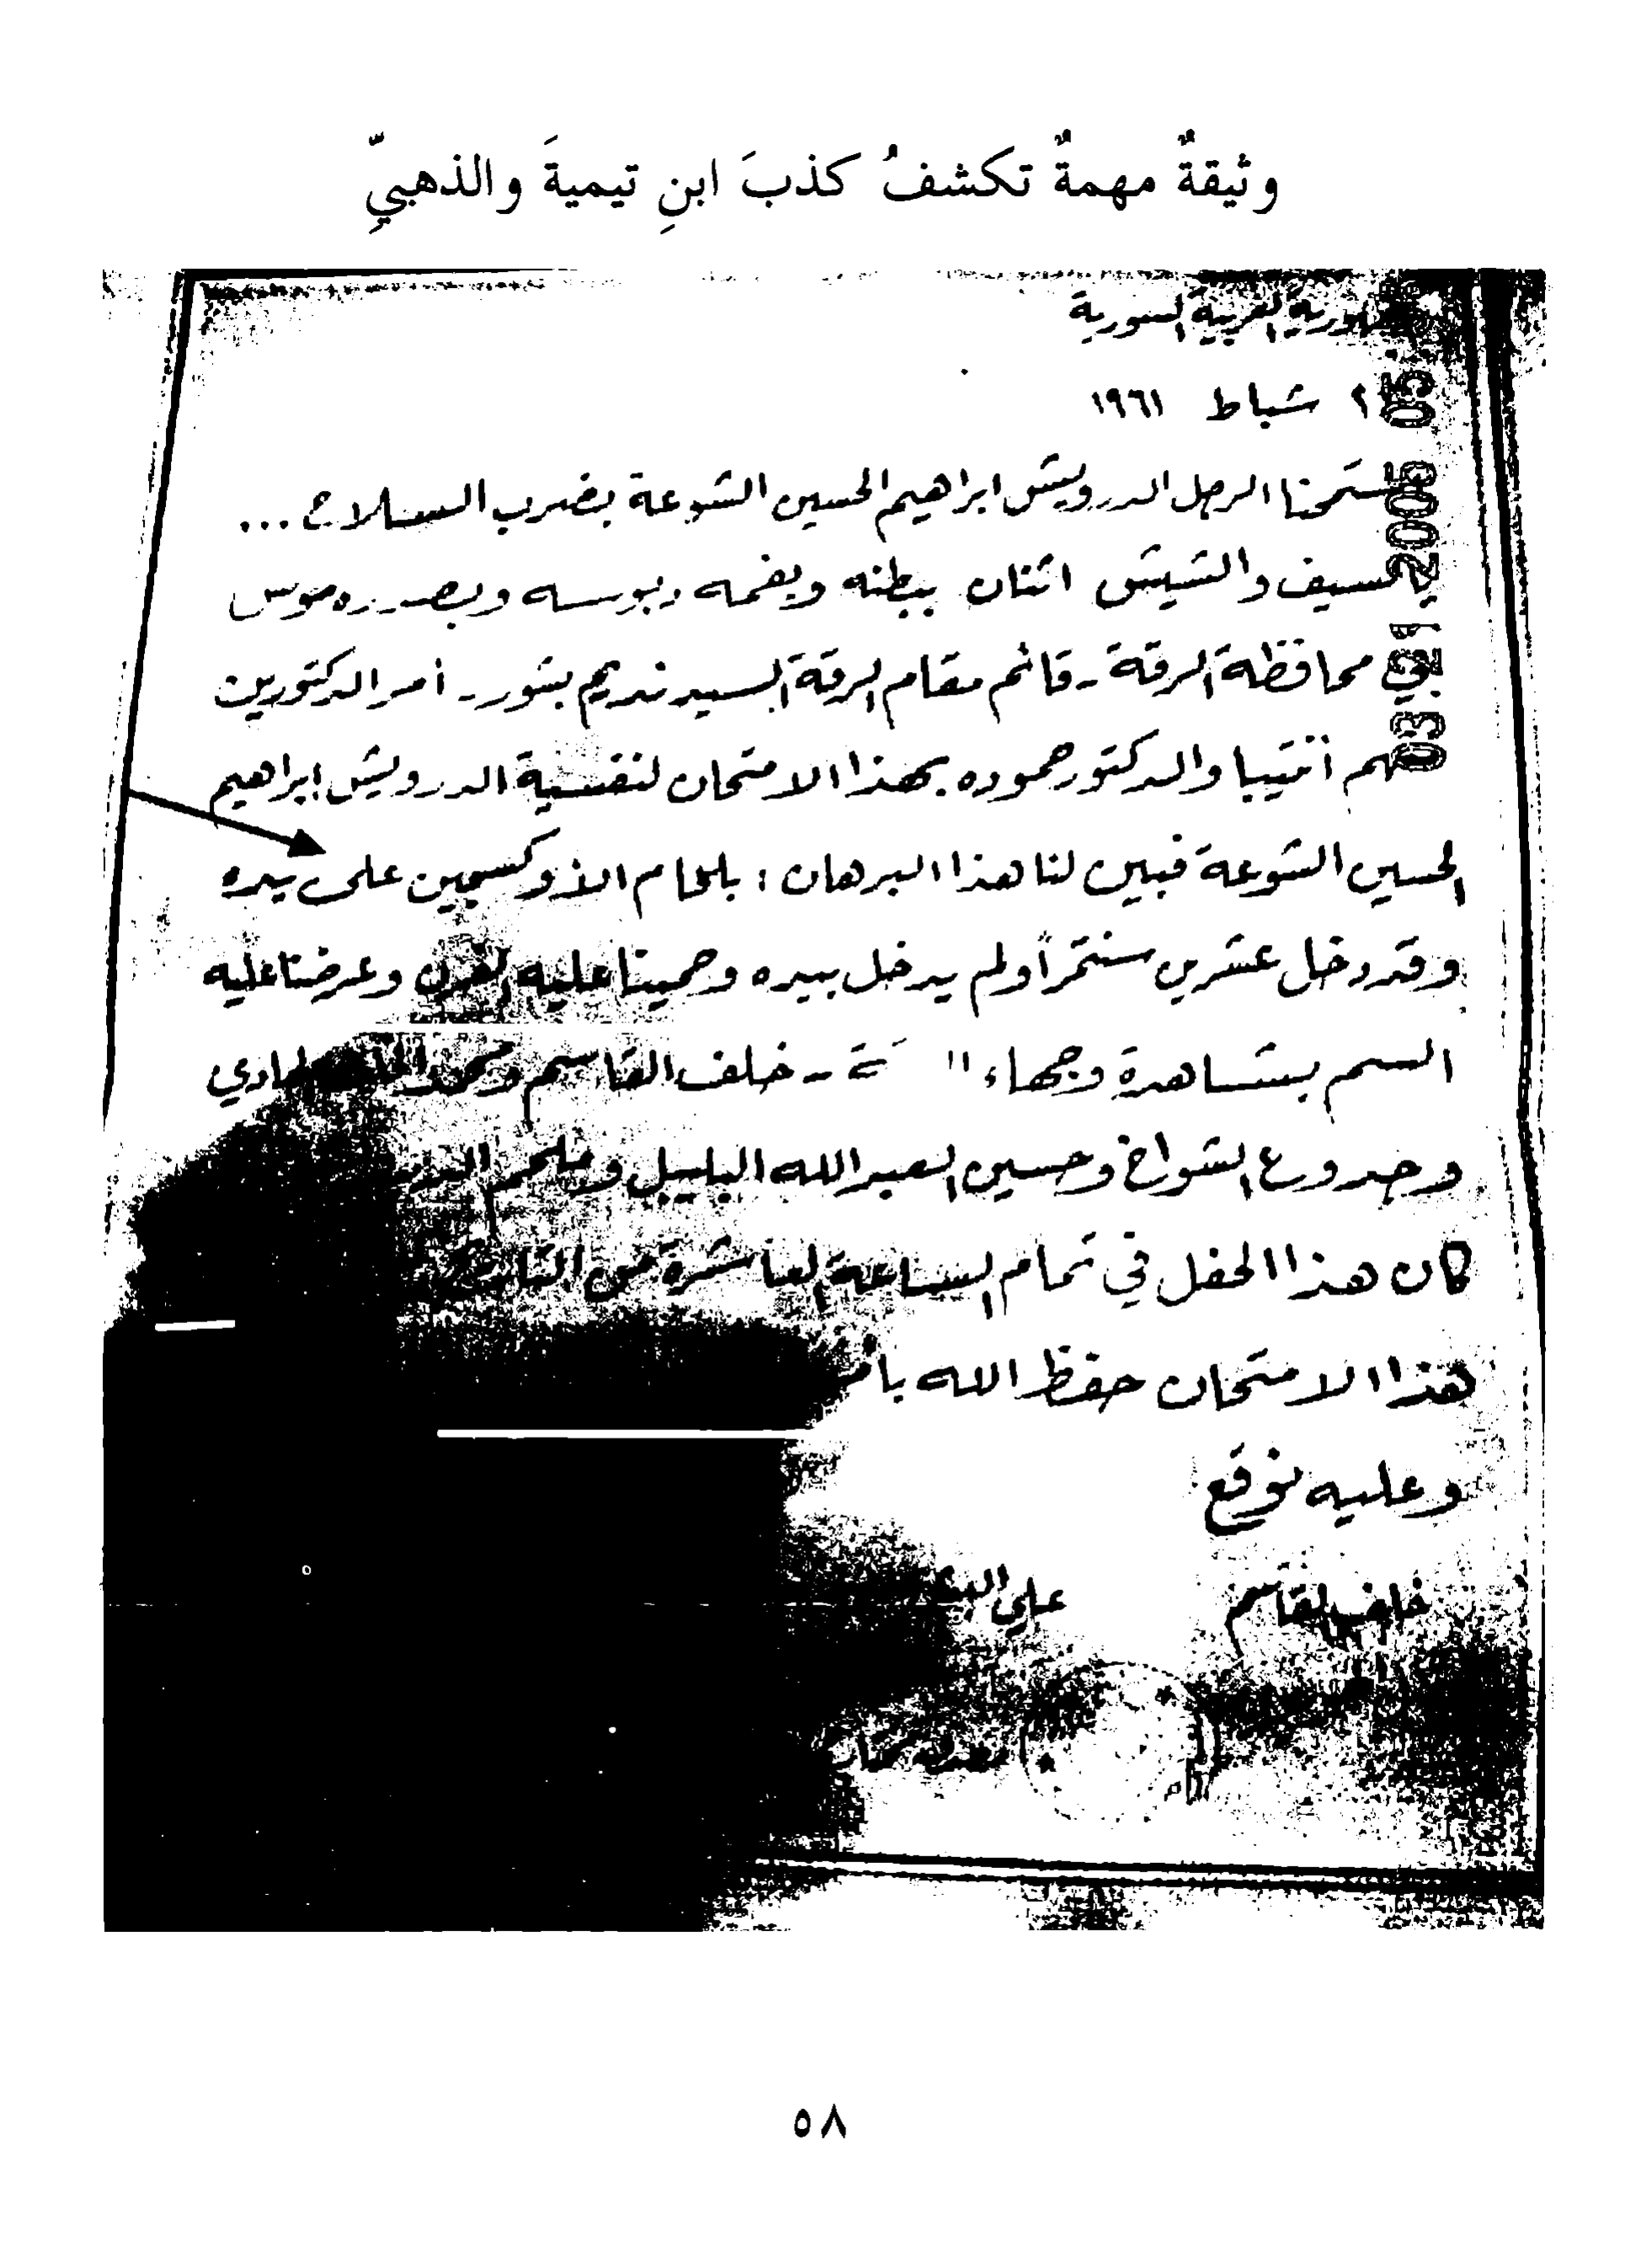 وثيقةٌ مهمةٌ تكشفُ كذبَ ابنِ تيميةَ والذهبيِّ
العربية السورية
شباط ١٩٦١
الرجل الدرويش ابراهيم الحسين الشوعة بضرب السلاح ...
والشيش اثنان ببطنه وبفمه دبوسه وبصدره موس
في محافظة الرقة - قائم مقام الرقة السيد نديم بشور - أمر الدكتورين
والدكتور حموده بهذا الامتحان لنفسية الدرويش ابراهيم
الحسين الشوعة فبين لنا هذا البرهان : بلحام الاذوكسجين على يده
وقد دخل عشرين سنتمراً ولم يدخل بيده وحمينا عليه الفرن وعرضنا عليه
السم بشاهدة وجهاء - خلف القاسم
وجدوع الشواخ وحسين العبدالله البليبل وملحم
كان هذا الحفل في تمام الساعة العاشرة من
هذا الامتحان حفظ الله
وعليه نوقع
خلف القاسم علي
03 21 2005 05
٥٨